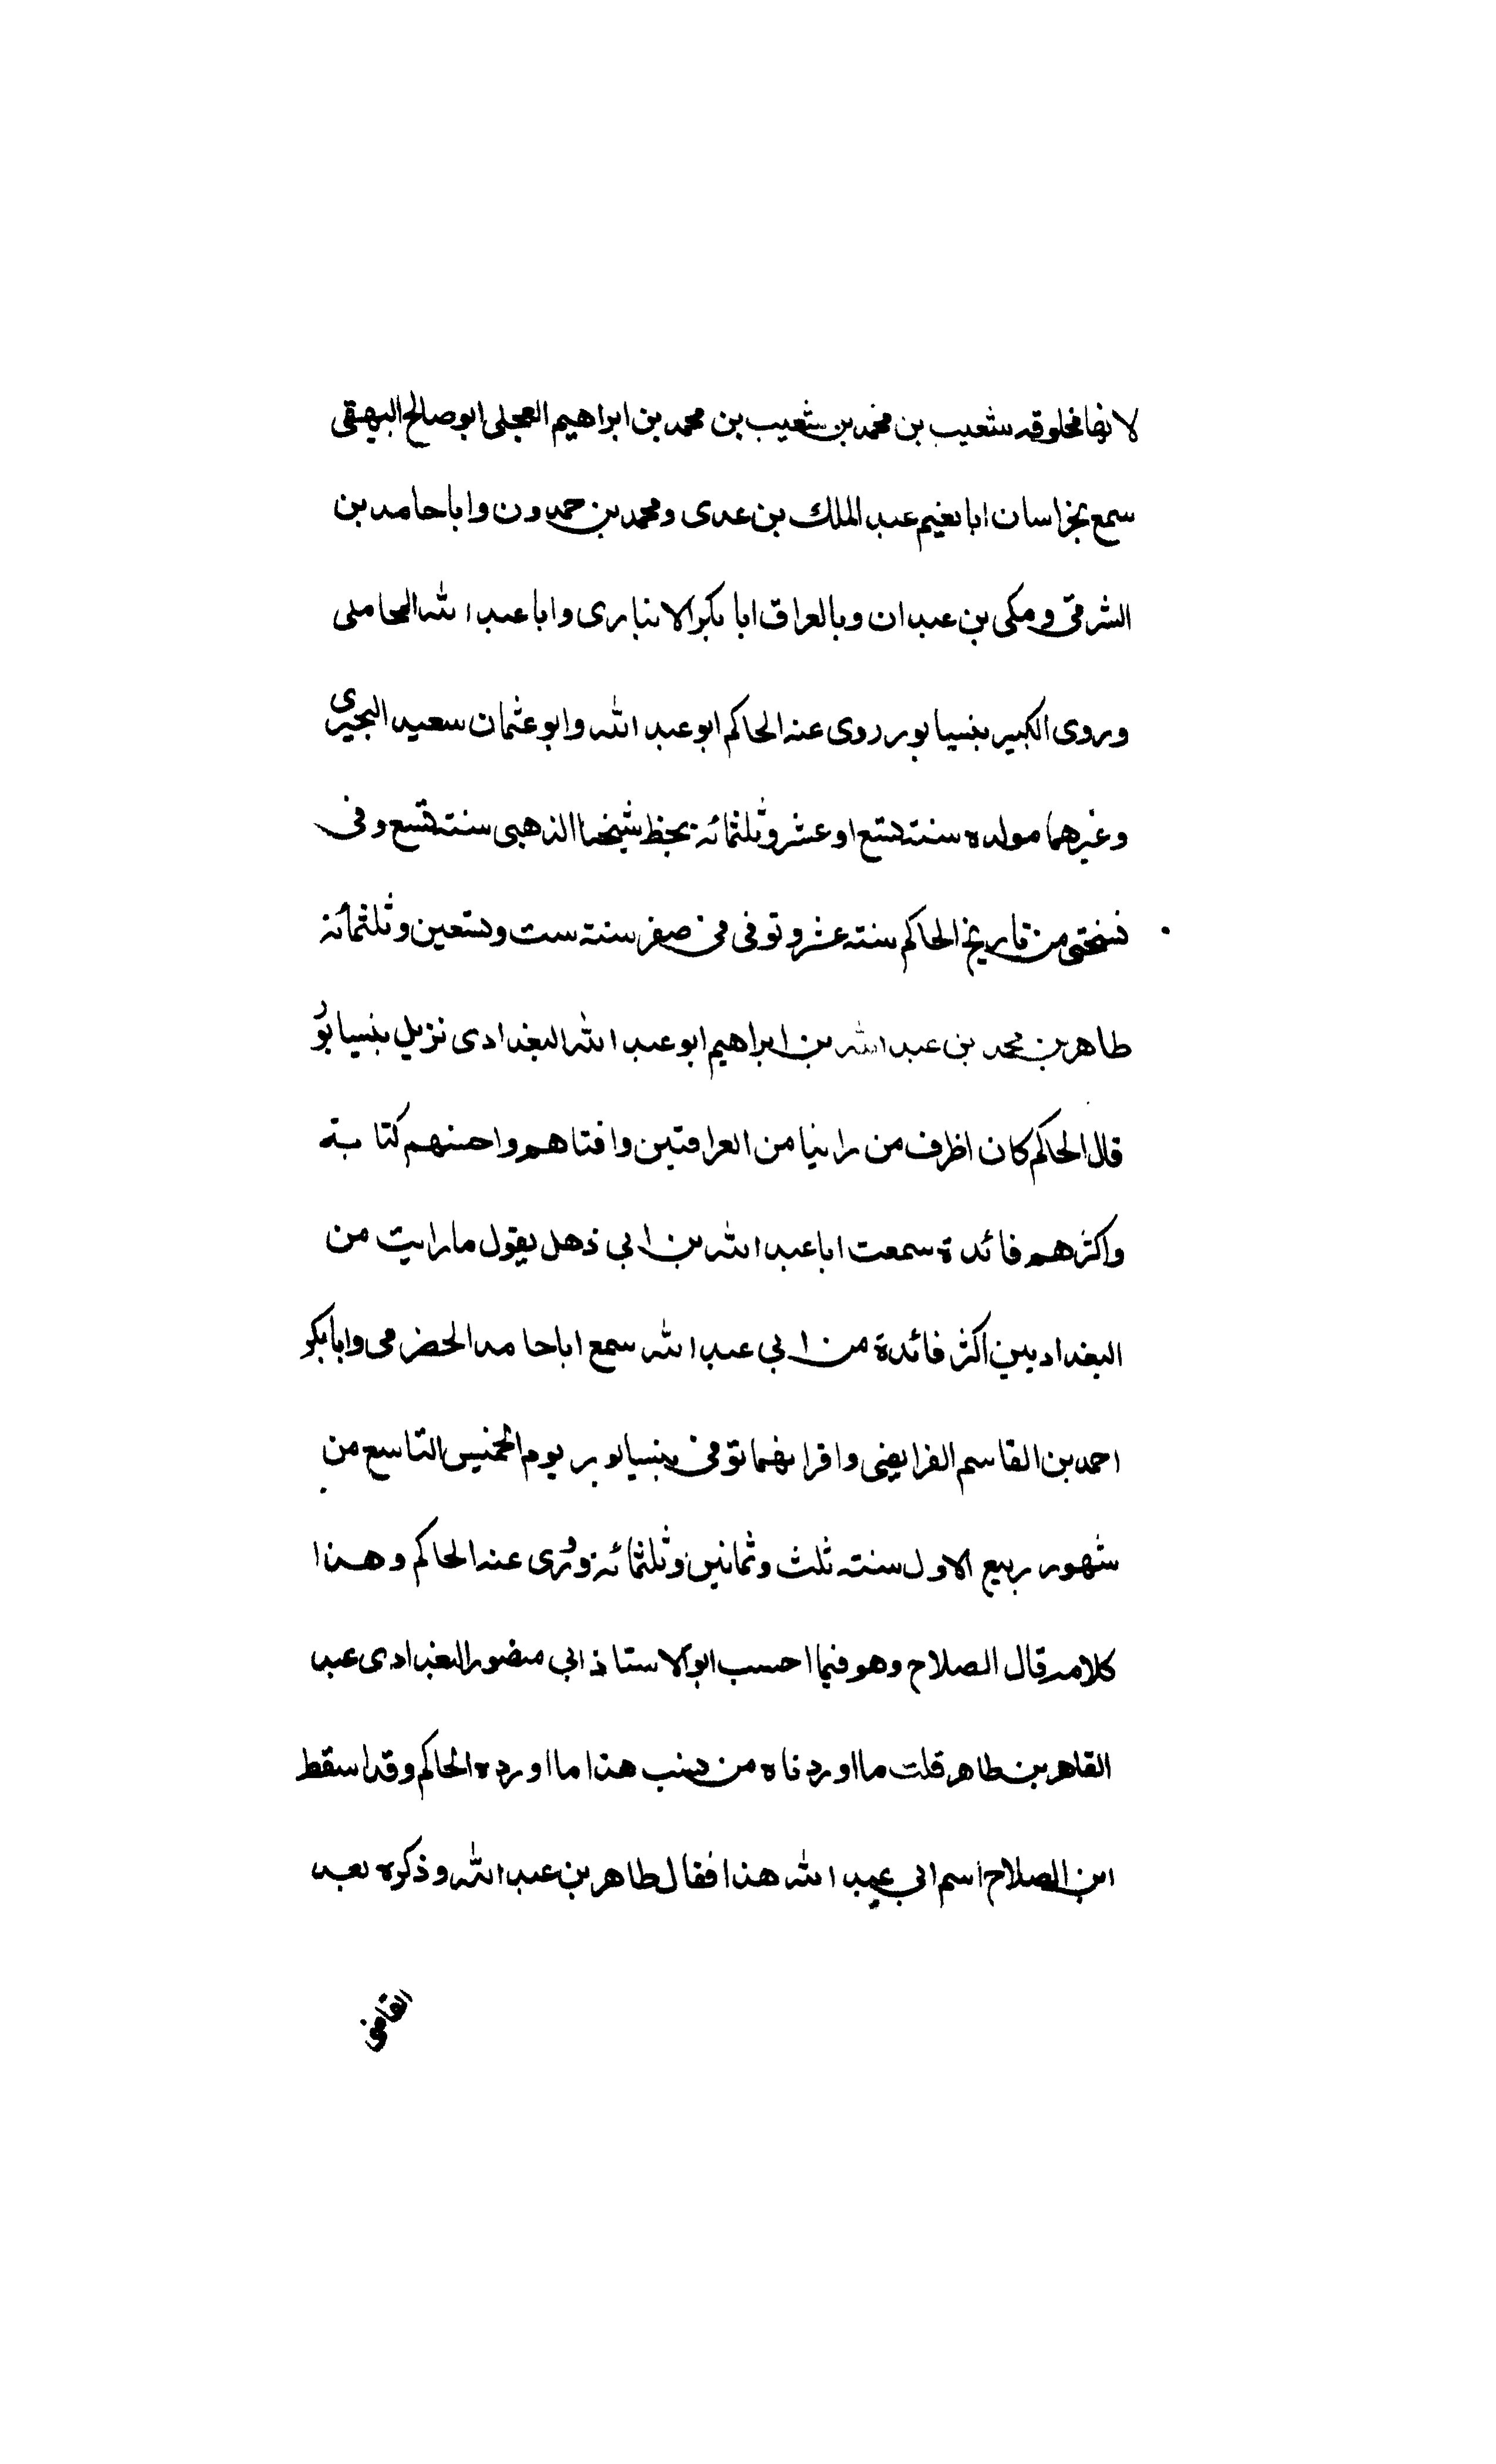 لانها مخلوقه شعيب بن محمد بن شعيب بن محمد بن ابراهيم العجلى ابو صالح البيهقى
سمع بخراسان ابا نعيم عبد الملك بن عدى ومحمد بن حمدون وابا حامد بن
الشرقى ومكى بن عبدان وبالعراق ابا بكر الانبارى وابا عبد الله المحاملى
وروى الكبير بنيسابور روى عنه الحاكم ابو عبد الله وابو عثمان سعيد البحيرى
وغيرهما مولده سنة تسع او عشر وثلثمائة بخط شيخنا الذهبى سنة تسع وفى
نسختى من تاريخ الحاكم سنة عشر وتوفى فى صفر سنة ست وتسعين وثلثمائة
طاهر بن محمد بن عبد الله بن ابراهيم ابو عبد الله البغدادى نزيل بنيسابور
قال الحاكم كان اظرف من راينا من العراقيين وافتاهم واحسنهم كتابة
واكثرهم فائدة سمعت ابا عبد الله بن ابي ذهل يقول ما رايت من
البغداديين اكثر فائدة من ابي عبد الله سمع ابا حامد الحضرمى وابا بكر
احمد بن القاسم الفرايضى واقرانهما توفى بنيسابور يوم الخميس التاسع من
شهور ربيع الاول سنة ثلث وثمانين وثلثمائة وروى عنه الحاكم وهذا
كلامه قال الصلاح وهو فيما احسب ابو الاستاذ ابي منصور البغدادى عبد
القاهر بن طاهر قلت ما اوردناه من نسب هذا ما اورده الحاكم وقد اسقط
ابن الصلاح اسم ابي عبد الله هذا فقال طاهر بن عبد الله وذكره بعد
القاضى